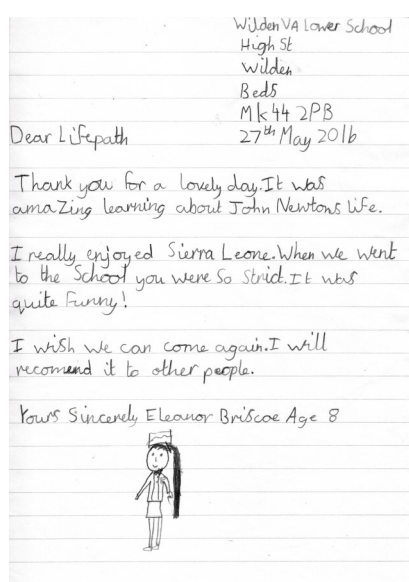 Wilden VA Lower School
High St
Wilden
Beds
Mk44 2PB
27th May 2016
Dear Lifepath
Thank you for a lovely day. It was
amaZing learning about John Newtons life.
I really enjoyed Sierra Leone. When we went
to the School you were So Strict. It was
quite Funny!
I wish we can come again. I will
recomend it to other people.
Yours Sincerely Eleanor Briscoe Age 8